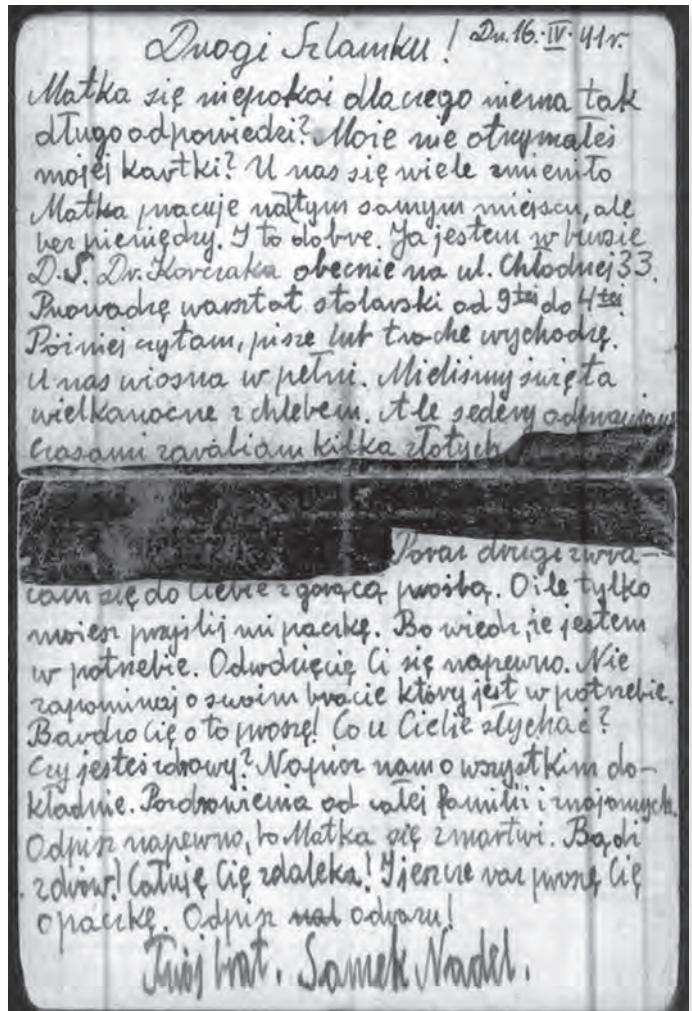 Drogi Szlamku! Dn. 16.IV.41r.
Matka się niepokoi dlaczego niema tak
długo odpowiedzi? Może nie otrzymałeś
mojej kartki? U nas się wiele zmieniło
Matka pracuje na tym samym miejscu, ale
bez pieniędzy. I to dobre. Ja jestem w bursie
D.S. Dr. Korczaka obecnie na ul. Chłodnej 33.
Prowadzę warsztat stolarski od 9tej do 4tej
Później czytam, piszę lub trochę wychodzę.
U nas wiosna w pełni. Mieliśmy święta
wielkanocne z chlebem. Ale sedery odprawiano
Czasami zarabiam kilka złotych
Poraz drugi zwra-
cam się do Ciebie z gorącą prośbą. O ile tylko
możesz przyślij mi paczkę. Bo wiedz, że jestem
w potrzebie. Odwdzięcię Ci się napewno. Nie
zapominaj o swoim bracie który jest w potrzebie.
Bardzo Cię o to proszę! Co u Ciebie słychać?
Czy jesteś zdrowy? Napisz nam o wszystkim do-
kładnie. Pozdrowienia od całej familii i znajomych.
Odpisz napewno, bo Matka się zmartwi. Bądź
zdrów! Całuję Cię zdaleka! I jeszcze raz proszę Cię
o paczkę. Odpisz odrazu!
Twój brat. Samek Nadel.